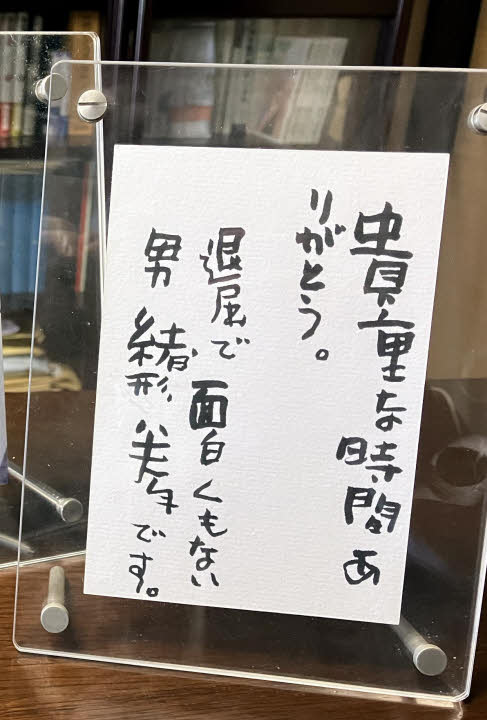 貴重な時間あ
りがとう。
退屈で面白くもない
男 緒形 拳です。